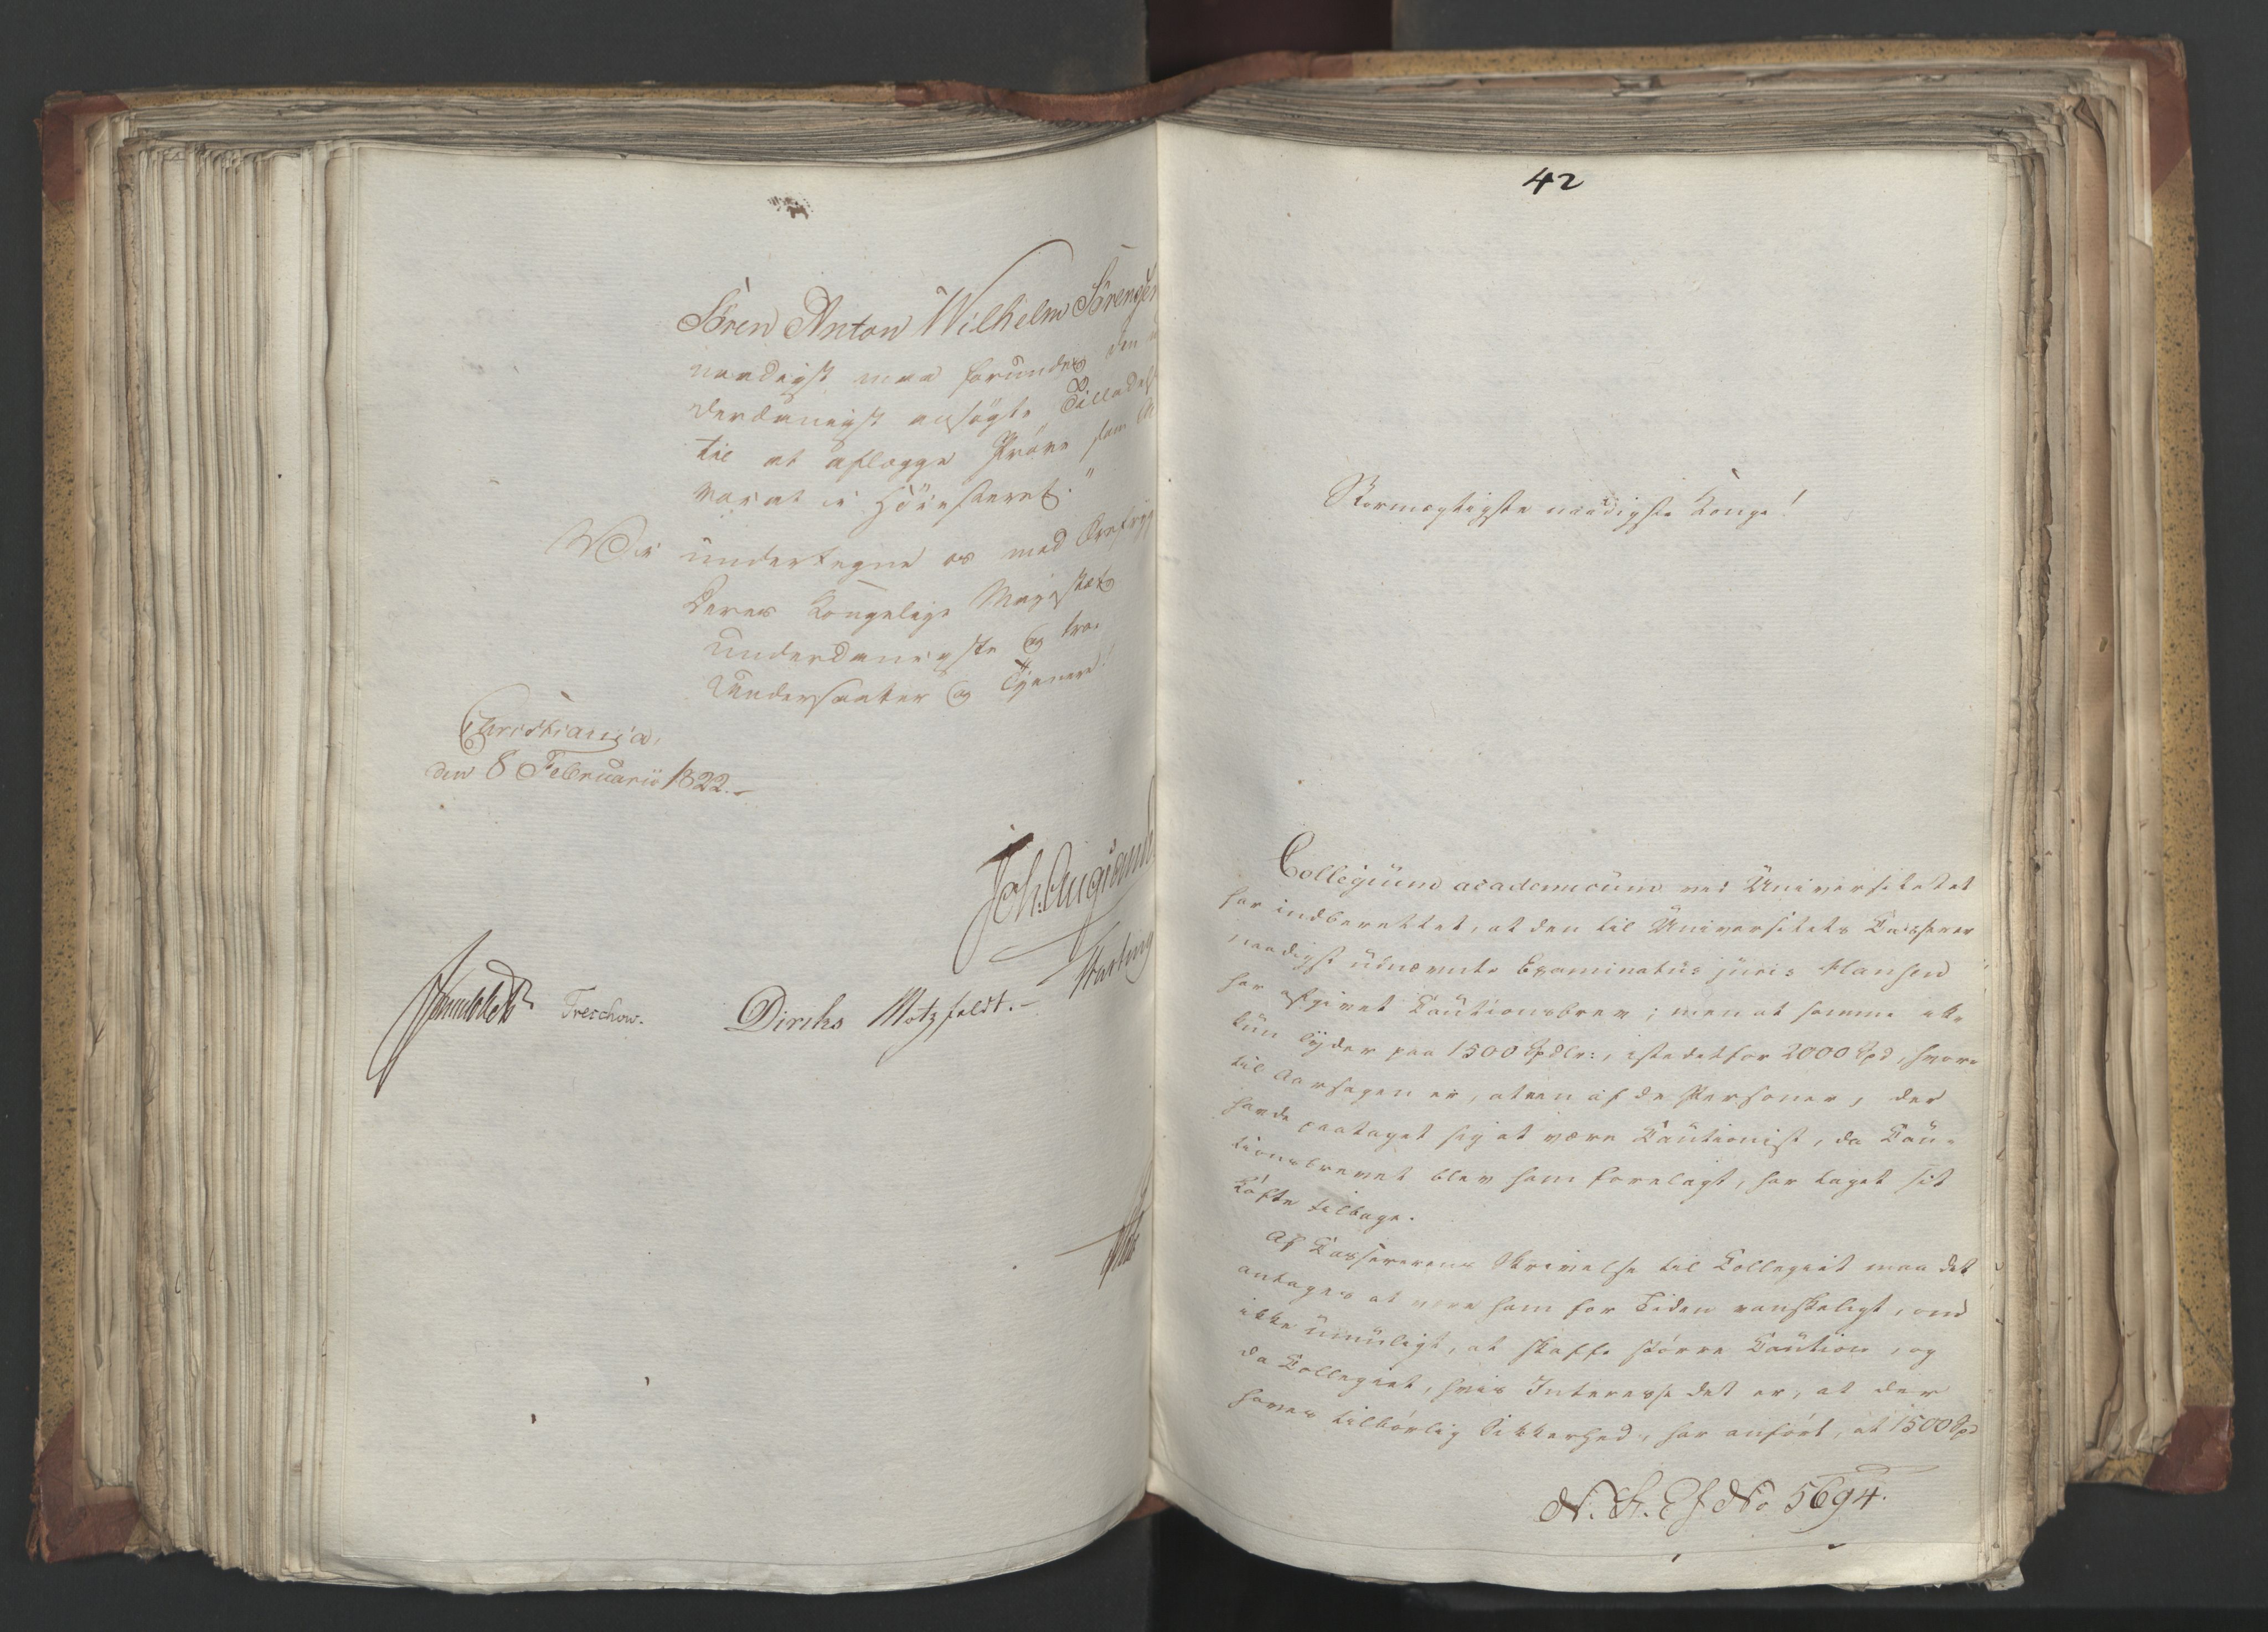 Sören Anton Wilhelm Sörens
naadigst maa forundes den
derdanigst ansögte Tillade
til at aflægge Pröve som
vocat i Höiesteret."
Vi undertegne os med Ærefryg
Deres Kongelige Majestæts
underdanigste og troe
Undersaatter og Tjenere!
Christiania,
den 8 Februarii 1822.-
Joh: Aug: Sand
Treschow. Diriks Motzfeldt.-
42
Stormægtigste naadigste Konge!
Collegium academicum ved Universitetet
har indberettet, at den til Universitets Casserer
naadigst udnævnte Examinatus juris Hansen
har afgivet Cautionsbrev; men at samme ikke
kun lÿder paa 1500 Spdlr:, istedetfor 2000 Spd, hvor-
til Aarsagen er, at een af de Personer, der
havde paataget sig at være Cautionist, da Cau-
tionsbrevet blev ham forelagt, har taget sit
Löfte tilbage.
Af Cassererens Skrivelse til Collegiet maa det
antages at være ham for Tiden vanskeligt, om
ikke umuligt, at skaffe större Caution, og
da Collegiet, hvis Interesse det er, at der
haves tilbörlig Sikkerhed, har anfört, at 1500 Spd
N. S. Ef No 5694.